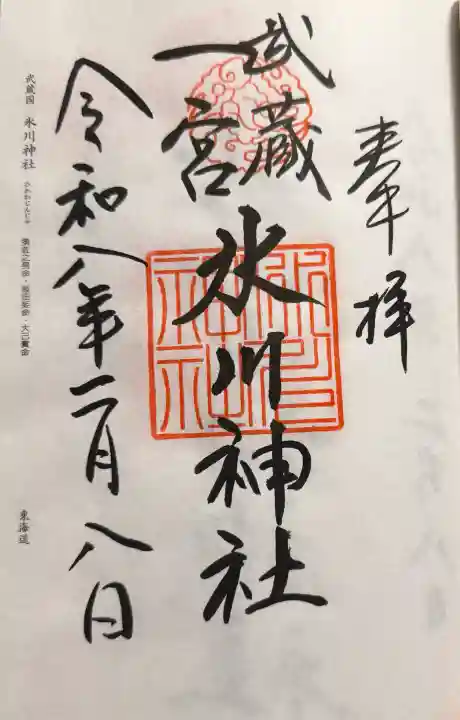 奉拝
武蔵
一宮
氷川神社
氷川神社
令和八年二月八日
武蔵国 氷川神社 ひかわじんじゃ 須佐之男命・稲田姫命・大己貴命
東海道